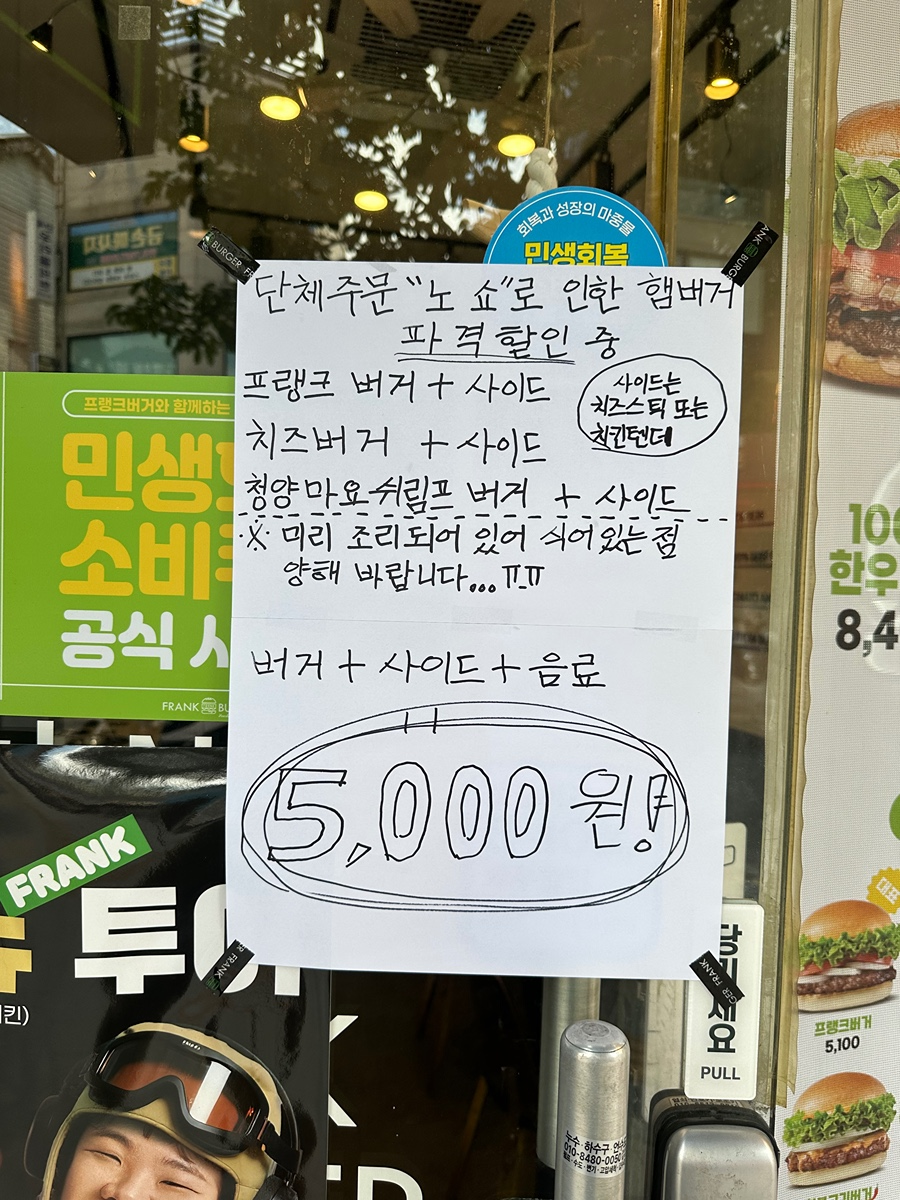 회복과 성장의 마중물
민생회복
BURGER FR
ANK BURG
단체주문 "노 쇼"로 인한 햄버거
파격할인 중
프랭크 버거 + 사이드
치즈버거 + 사이드
사이드는
치즈스틱 또는
치킨텐더
청양마요쉬림프 버거 + 사이드
※ 미리 조리되어 있어 식어있는점
양해 바랍니다...ㅠ_ㅠ
버거 + 사이드 + 음료
5,000 원!
프랭크버거와 함께하는
민생
소비
공식
FRANK BU
FRANK
투
킨)
100
한우
8,4
대표
프랭크버거
5,100
PULL
누수·하수구
010-8480-005
GER FRANK
FRANK
GER FRANK